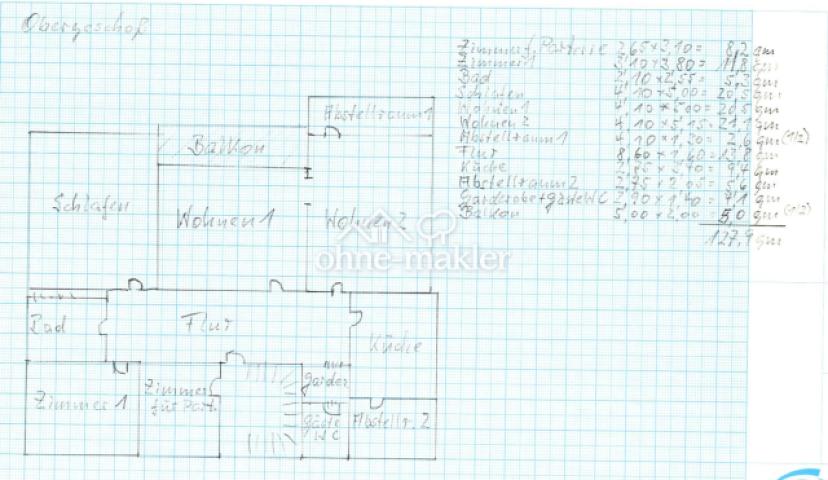 Obergeschoß
Zimmer f. Parterie 2,65 x 3,10 = 8,2 qm
Zimmer 1 3,10 x 3,80 = 11,8 qm
Bad 2,10 x 2,55 = 5,3 qm
Schlafen 4,10 x 5,00 = 20,5 qm
Wohnen 1 4,10 x 5,00 = 20,5 qm
Wohnen 2 4,10 x 5,15 = 21,1 qm
Abstellraum 1 4,10 x 1,30 = 2,6 qm (1/2)
Flur 8,60 x 1,60 = 13,8 qm
Küche 3,40 = 9,4 qm
Abstellraum 2 2,75 x 2,05 = 5,6 qm
Garderobe + gäste WC 2,90 x 1,40 = 4,1 qm
Balkon 5,00 x 2,00 = 5,0 qm (1/2)
127,9 qm
Abstellraum 1
Balkon
Schlafen
Wohnen 1
Wohnen 2
ohne-makler
Bad
Flur
Küche
Zimmer 1
Zimmer
für Part.
garder
gäste
WC
Abstellr. 2